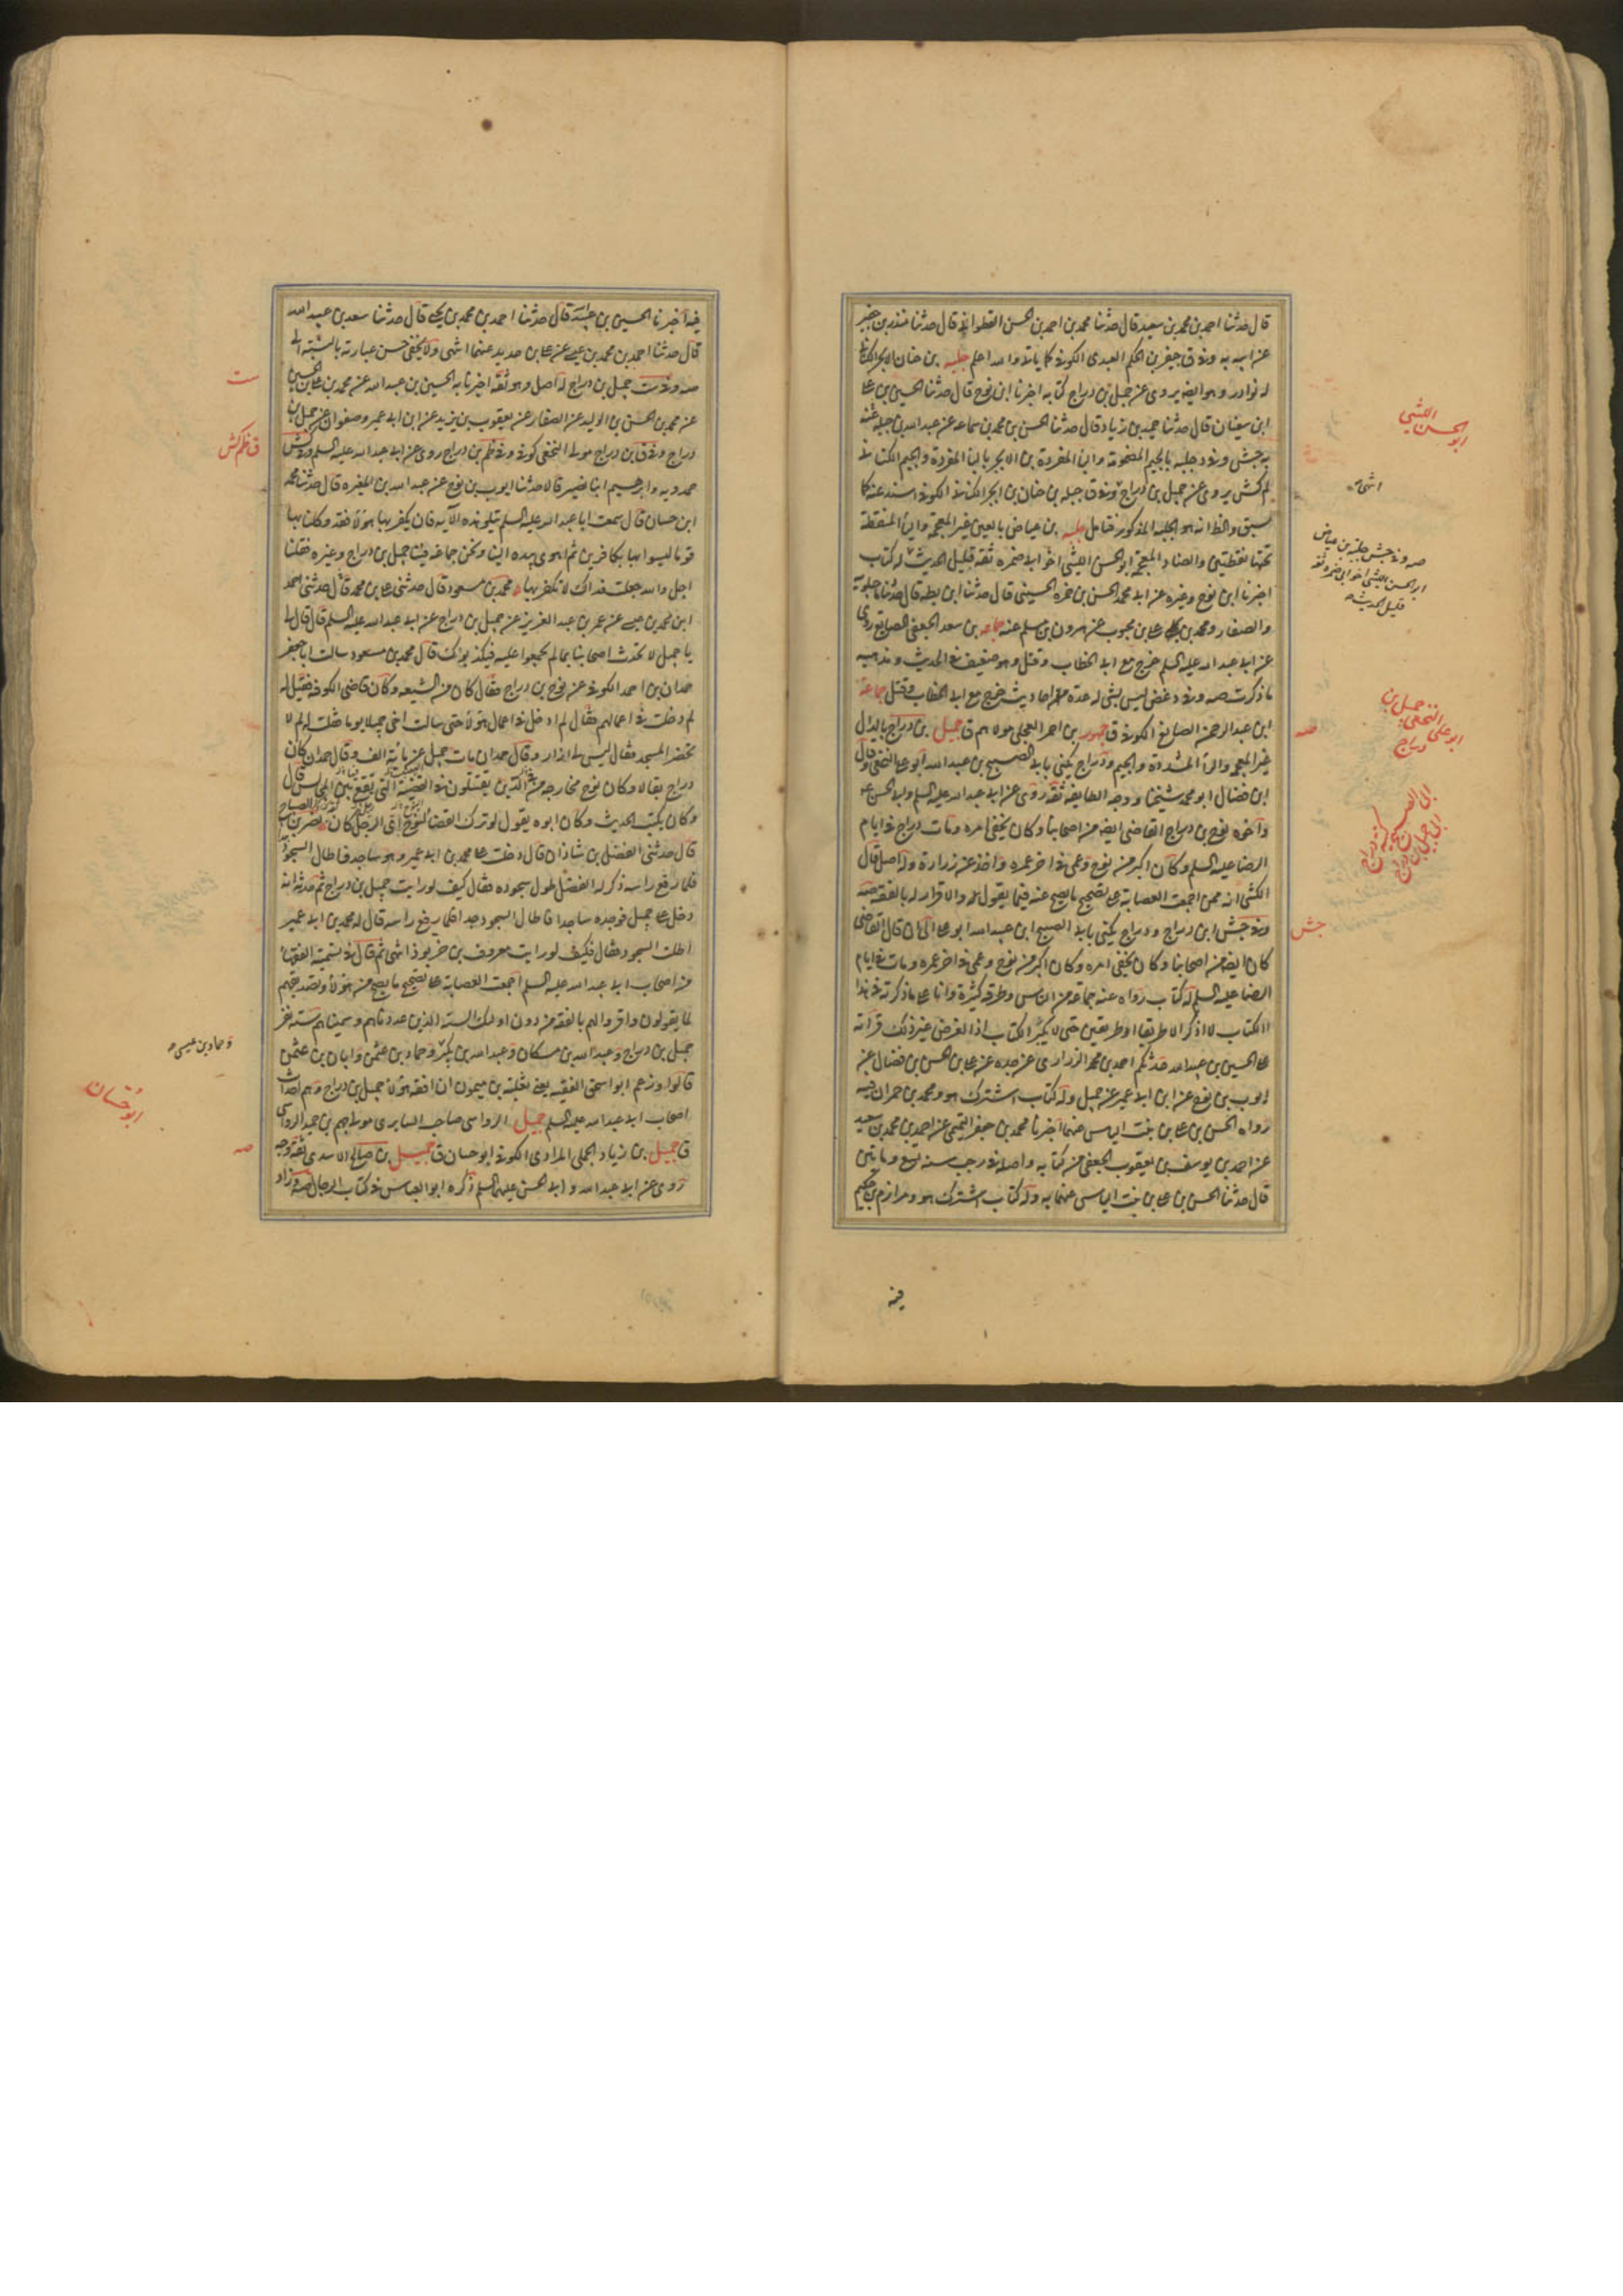 قال حدثنا احمد بن محمد بن سعيد قال حدثنا محمد بن احمد بن الحسن القطواني قال حدثنا منذر بن جفير
عن ابيه به وفي ق جعفر بن الحكم العبدي الكوفي كما ياتي والله اعلم جلبة بن حنان
له نوادر وهو ايضا يروى عن جميل بن دراج كتابه اخبرنا ابن نوح قال حدثنا الحسين بن على
ابن سفيان قال حدثنا حميد بن زياد قال حدثنا الحسن بن محمد بن سماعه عن عبد الله بن جبلة عنه
به جش وفي د جلبه بالجيم المضمومة والباء المفردة بن الابجر بالباء المفردة والجيم الكناني
لم كش يروى عن جميل بن دراج وفي ق جبله بن حنان بن ابجر الكناني الكوفي اسند عنه كما
سبق والظ انه هو الجلبه المذكور فتامل جلبه بن عياض بالعين غير المعجمة والياء المنقطة
تحتها نقطتين والضاد المعجمة ابو الحسن الليثى اخو ابي ضمرة ثقة قليل الحديث له كتاب
اخبرنا ابن نوح وغيره عن ابي محمد الحسن بن حمزه الحسينى قال حدثنا ابن بطه قال حدثنا
والصفار ومحمد بن على بن محبوب عن هرون بن مسلم عنه جماعه بن سعد الجعفى الصايغ روى
عن ابي عبد الله عليه السلم خرج مع ابي الخطاب وقتل وهو ضعيف في الحديث ومذهبه
ما ذكرت صه وفي د غض ليس بشى له عدة احاديث خرج مع ابي الخطاب وقتل جماعة
ابن عبد الرحمن الصايغ الكوفي ق جمهور بن احمر العجلى مولاهم ق جميل بن دراج بالدال
غير المعجمة والراء المشددة والجيم ودراج يكنى بابي الصبيح بن عبد الله ابو على النخعى وقال
ابن فضال ابو محمد شيخنا ووجه الطايفه ثقة روى عن ابي عبد الله عليه السلم وابي الحسن ع
واخوه نوح بن دراج القاضى ايضا من اصحابنا وكان يخفى امره ومات دراج في ايام
الرضا عليه السلم وكان اكبر من نوح وعمى في اخر عمره واخذ عن زرارة وله اصل قال
الكشى انه ممن اجمعت العصابة على تصحيح ما يصح عنه فيما يقول والاقرار له بالفقه صه
وفي جش ابن دراج ودراج يكنى بابي الصبيح ابن عبد الله ابو على الى ان قال القاضى
كان ايضا من اصحابنا وكان يخفى امره وكان اكبر من نوح وعمى في اخر عمره ومات في ايام
الرضا عليه السلم له كتاب رواه عنه جماعة من الناس وطرقه كثيرة وانا على ما ذكرته في هذا
الكتاب لا اذكر الا طريقا او طريقين حتى لا يكبر الكتاب اذ الغرض غير ذلك قراته
على الحسين بن عبد الله حدثكم احمد بن محمد الزراري عن جده عن على بن الحسن بن فضال عن
ايوب بن نوح عن ابن ابي عمير عن جميل وله كتاب اشترك هو ومحمد بن حمران فيه
رواه الحسن بن على بن بنت الياس عنهما اخبرنا محمد بن جعفر التميمى عن احمد بن محمد بن سعيد
عن احمد بن يوسف بن يعقوب الجعفى من كتابه واصله في رجب سنه تسع ومائتين
قال حدثنا الحسن بن على بن بنت الياس عنهما به وله كتاب اشترك هو ومرازم بن حكيم
فيه
ابو الحسن الليثى
صه وفي جش جلبة بن عياض
ابو الحسن الليثى اخو ابي ضمرة ثقة
قليل الحديث
جميل بن
دراج
ابو على النخعى
صه
جش
فيه اخبرنا الحسين بن عبيد الله قال حدثنا احمد بن محمد بن يحيى قال حدثنا سعد بن عبد الله
قال حدثنا احمد بن محمد بن عيسى عن على بن حديد عنهما انتهى ولا يخفى حسن عبارته بالنسبة الى
صه وفي ست جميل بن دراج له اصل وهو ثقة اخبرنا به الحسين بن عبد الله عن محمد بن على بن الحسين
عن محمد بن الحسن بن الوليد عن الصفار عن يعقوب بن يزيد عن ابن ابي عمير وصفوان عن جميل بن
دراج وفي ق بن دراج مولى النخعى كوفي وفي ظم بن دراج روى عن ابي عبد الله عليه السلم وفي كش
حمدويه وابرهيم ابنا نصير قالا حدثنا ايوب بن نوح عن عبد الله بن المغيره قال حدثنا محمد
ابن حسان قال سمعت ابا عبد الله عليه السلم يتلو هذه الآيه فان يكفر بها هؤلاء فقد وكلنا بها
قوما ليسوا بها بكافرين ثم اهوى بيده الينا ونحن جماعة فينا جميل بن دراج وغيره فقلنا
اجل والله جعلت فداك لا نكفر بها محمد بن مسعود قال حدثنى على بن محمد قال حدثنى احمد
ابن محمد بن عيسى عن عمر بن عبد العزيز عن جميل بن دراج عن ابي عبد الله عليه السلم قال قال لي
يا جميل لا تحدث اصحابنا بما لم يجمعوا عليه فيكذبوك قال محمد بن مسعود سالت ابا جعفر
حمدان بن احمد الكوفي عن نوح بن دراج فقال كان من الشيعه وكان قاضى الكوفه فقيل له
لم دخلت في اعمالهم فقال لم ادخل في اعمال هؤلاء حتى سالت اخى جميلا يوما فقلت له لم لا
تحضر المسجد فقال ليس لي ازار وقال حمدان مات جميل عن مائة الف وقال حمدان كان
دراج بقالا وكان نوح مخارجه من الذين يقتتلون في العصبية التى تقع بين المجالس قال
وكان يكتب الحديث وكان ابوه يقول لو ترك القضاء لنوح اى الرجل كان نصر بن الصباح
قال حدثنى الفضل بن شاذان قال دخلت على محمد بن ابي عمير وهو ساجد فاطال السجود
فلما رفع راسه ذكر له الفضل طول سجوده فقال كيف لو رايت جميل بن دراج ثم حدثه انه
دخل على جميل فوجده ساجدا فاطال السجود جدا فلما رفع راسه قال له محمد بن ابي عمير
اطلت السجود فقال فكيف لو رايت معروف بن خربوذ انتهى ثم قال في تسمية الفقهاء
من اصحاب ابي عبد الله عليه السلم اجمعت العصابة على تصحيح ما يصح من هؤلاء وتصديقهم
لما يقولون واقروا لهم بالفقه من دون اولئك الستة الذين عددناهم وسميناهم ستة نفر
جميل بن دراج وعبد الله بن مسكان وعبد الله بن بكير وحماد بن عثمن وابان بن عثمن
قالوا وزعم ابو اسحق الفقيه يعنى ثعلبة بن ميمون ان افقه هؤلاء جميل بن دراج وهم احداث
اصحاب ابي عبد الله عليه السلم جميل الرواسى صاحب السابرى مولى جهم بن حميد الرواسى
ق جميل بن زياد الجملى المرادى الكوفي ابو حسان ق جميل بن صالح الاسدى ثقة وجه
روى عن ابي عبد الله وابي الحسن عليهما السلم ذكره ابو العباس في كتاب الرجال صه وزاد
ست
ق ظم كش
وحماد بن عيسى
ابو حسان
صه